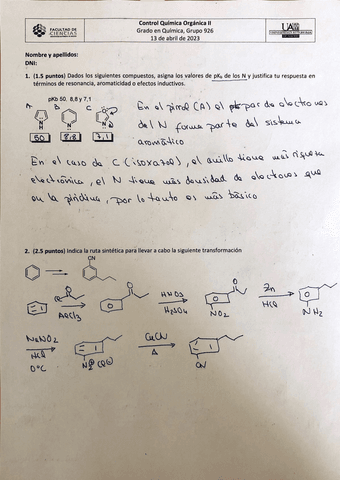 FACULTAD DE
CIENCIAS
Control Química Orgánica II
Grado en Química, Grupo 926
13 de abril de 2023
UA
Nombre y apellidos:
DNI:
1. (1.5 puntos) Dados los siguientes compuestos, asigna los valores de pKb de los N y justifica tu respuesta en
términos de resonancia, aromaticidad o efectos inductivos.
pKb 50, 8,8 y 7,1
A B C
50 8,8 7,1
En el pirrol (A) el par de electrones
del N forma parte del sistema
aromático
En el caso de C (isoxazol), el anillo tiene más riqueza
electrónica, el N tiene más densidad de electrones que
en la piridina, por lo tanto es más básico
2. (2.5 puntos) Indica la ruta sintética para llevar a cabo la siguiente transformación
CN
AlCl3
HNO3
H2SO4
NO2
Zn
HCl
NH2
NaNO2
HCl
0°C
CuCN
Δ
CN